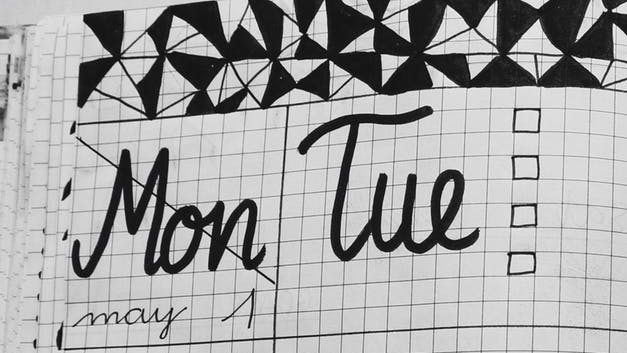 Mon Tue
may 1